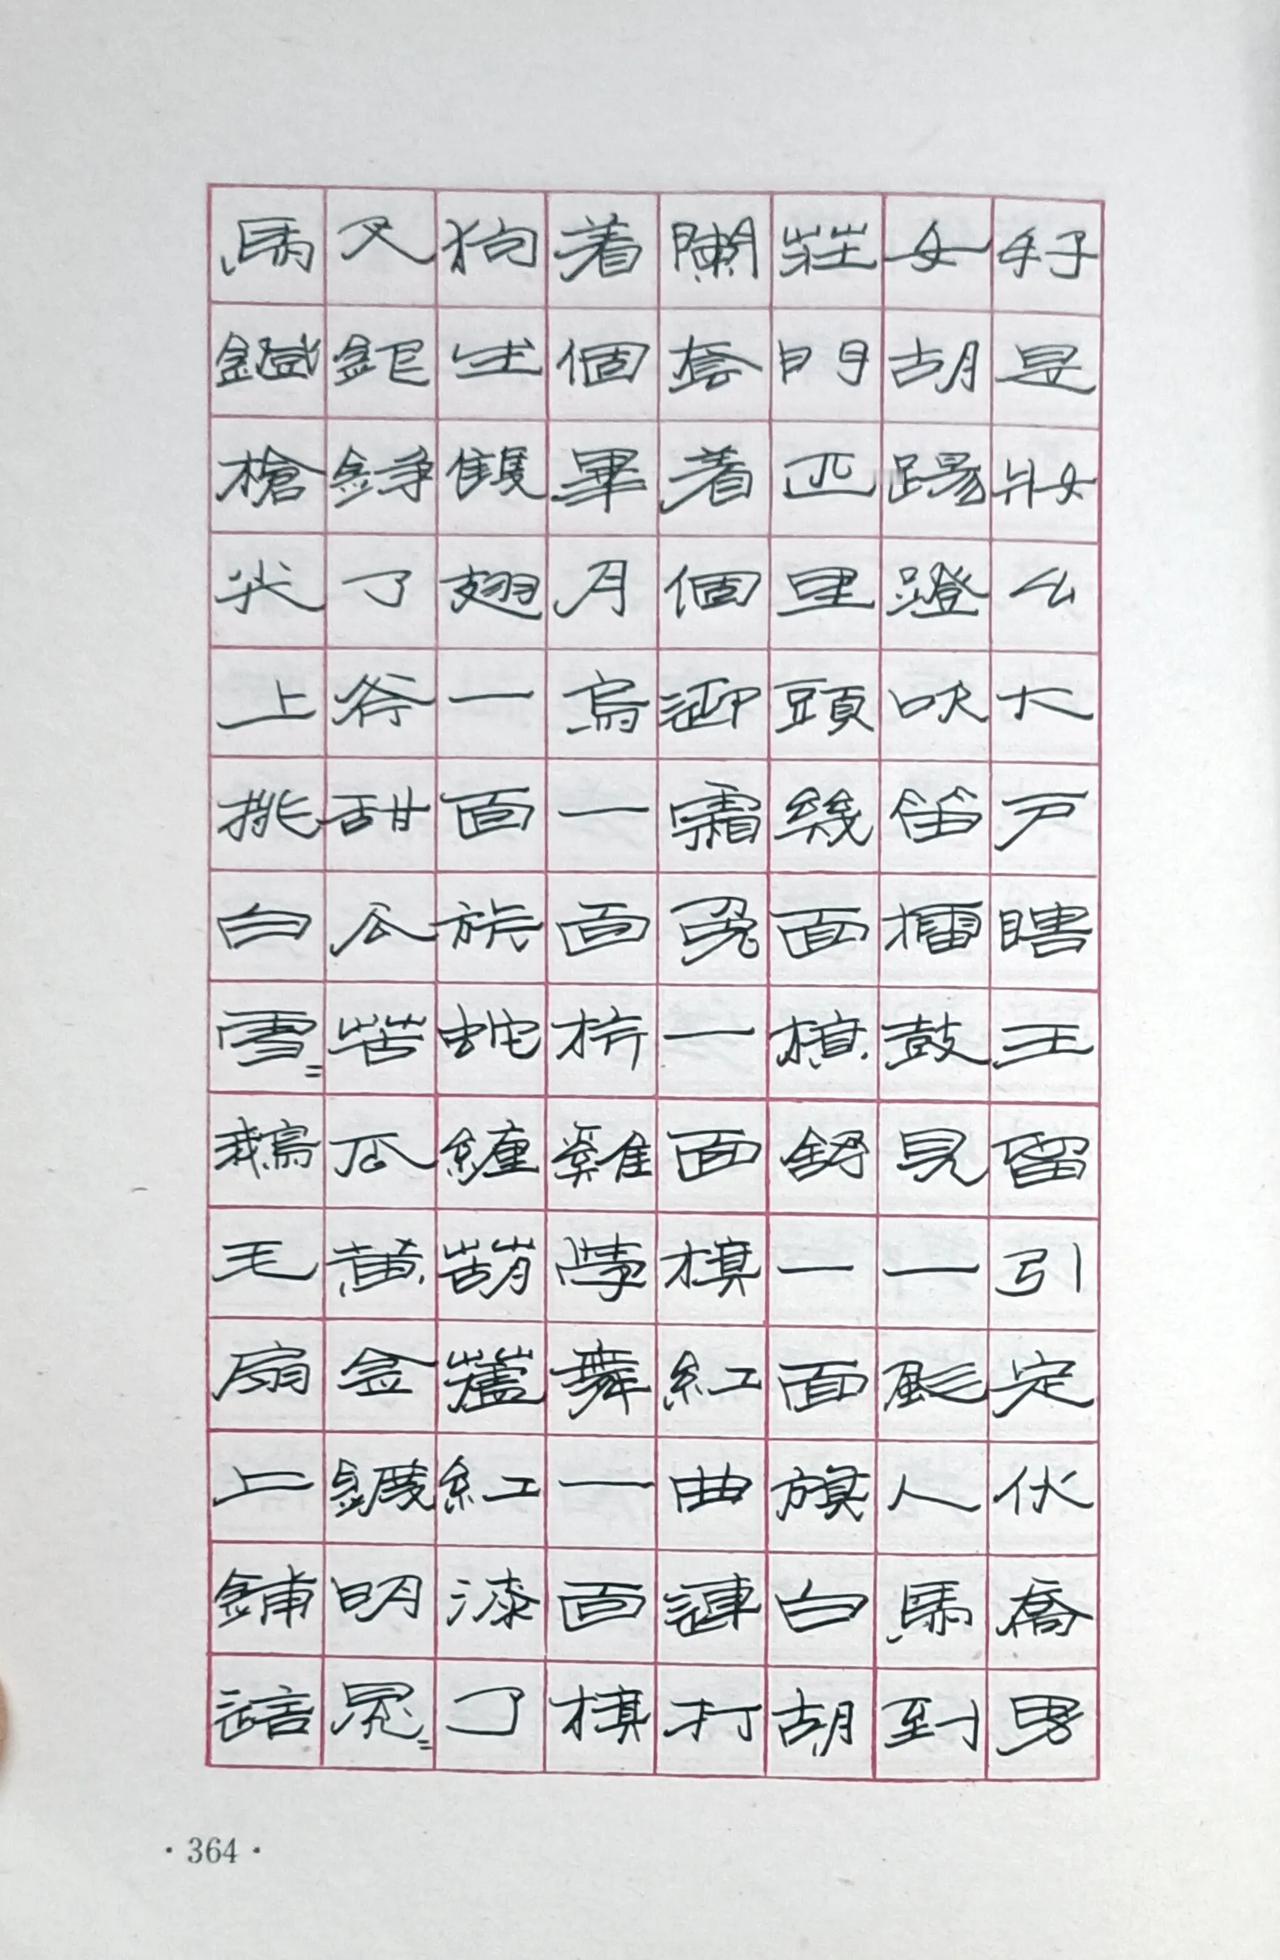 好是妝么大戶瞎王留引定伙喬男
女胡踢蹬吹笛擂鼓見一颩人馬到
莊門匹里頭幾面旗舒一面旗白胡
闌套着個迎霜兔一面旗紅曲連打
着個畢月烏一面旗雞學舞一面旗
狗生雙翅一面旗蛇纏葫蘆紅漆了
叉銀錚了斧甜瓜苦瓜黃金鍍明晃=
馬鐙槍尖上挑白雪=鵝毛扇上鋪這
·364·